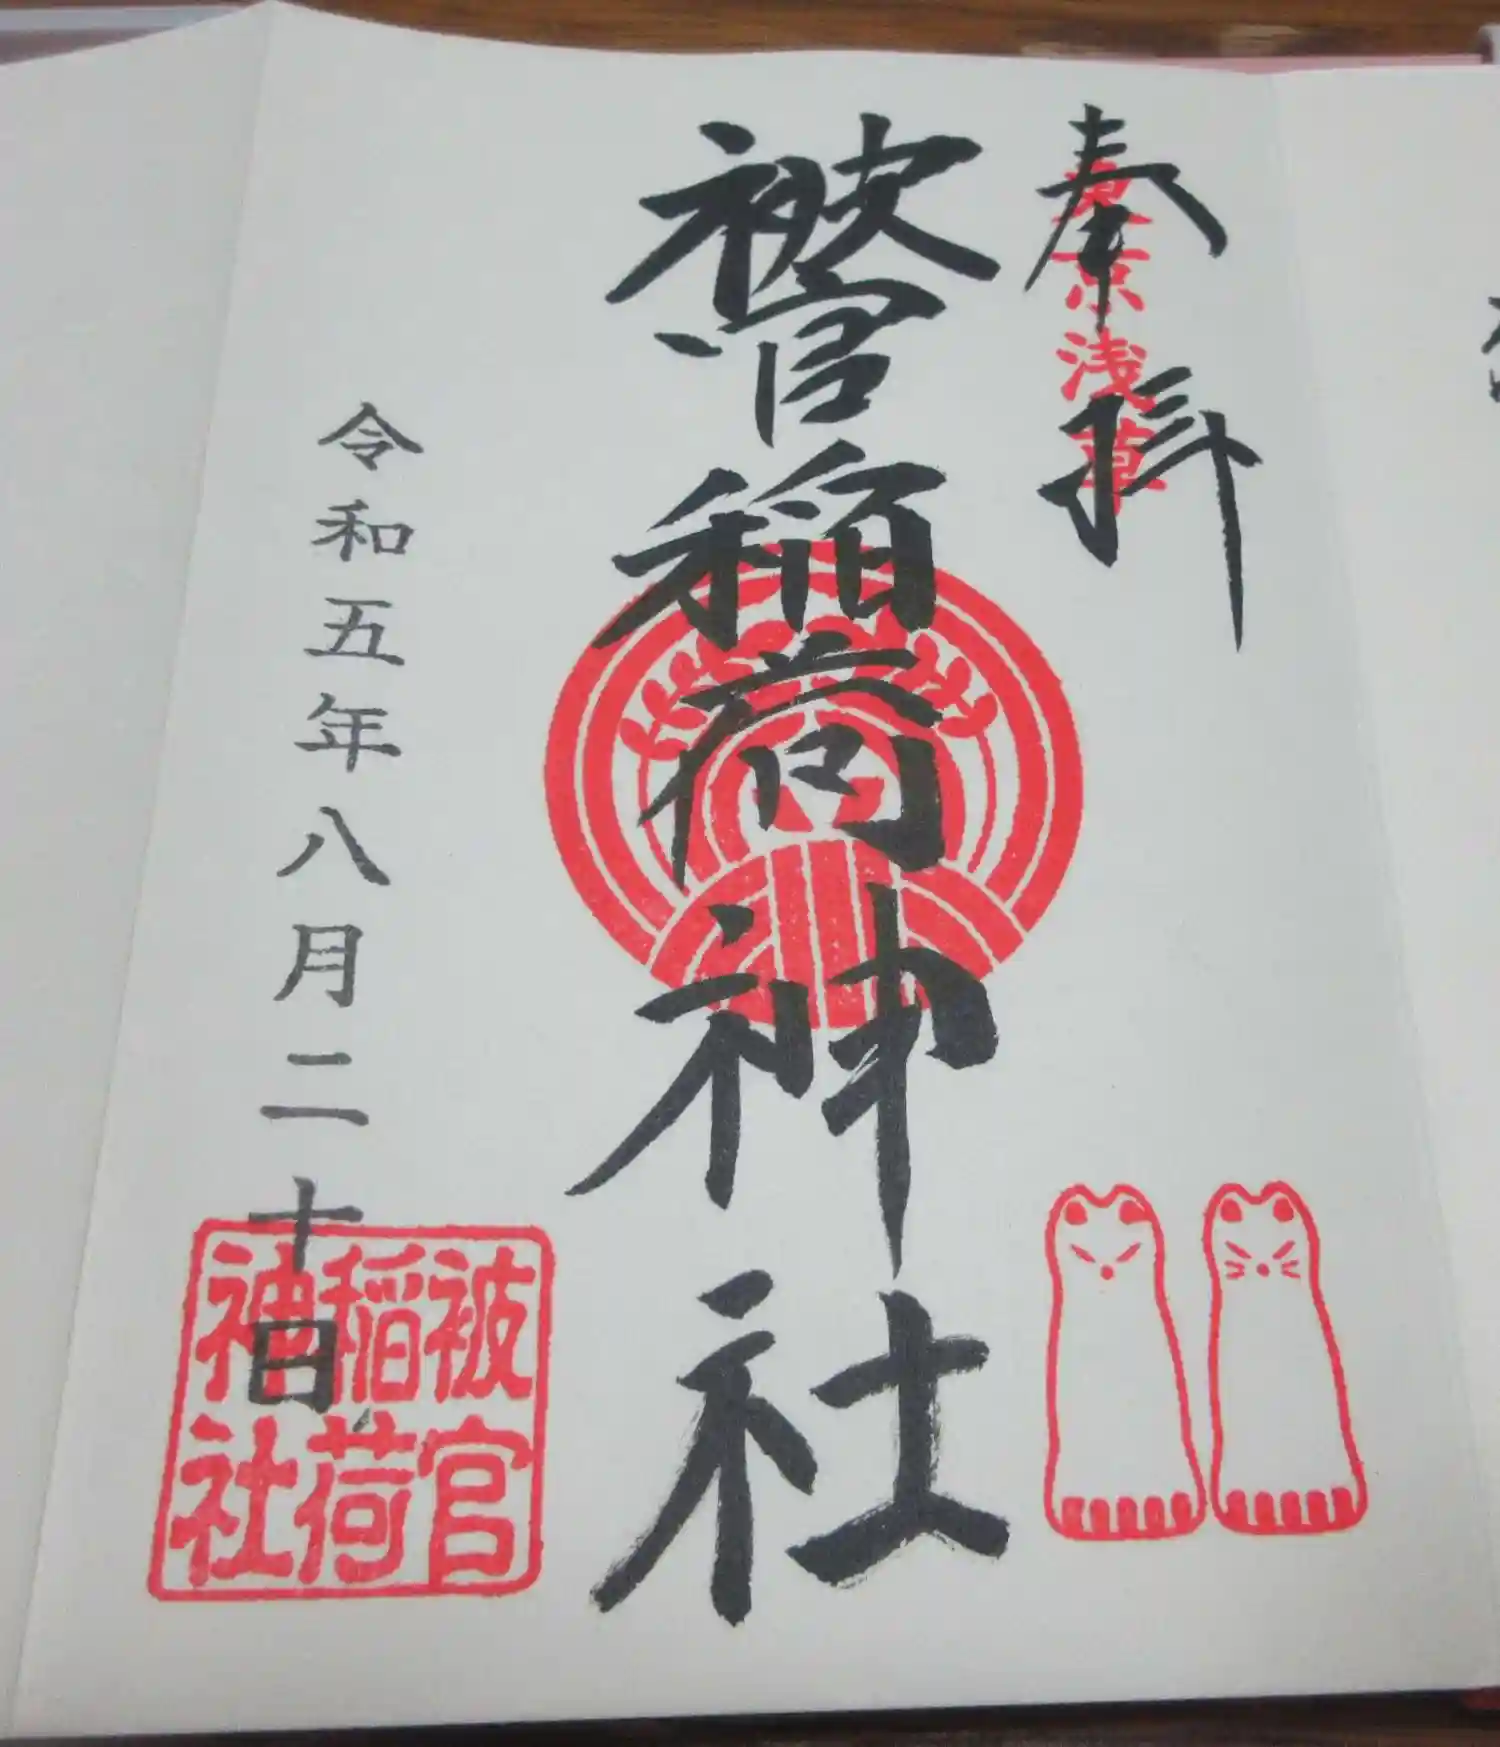 奉拝
東京浅草
被官稲荷神社
令和五年八月二十日
被官
稲荷
神社